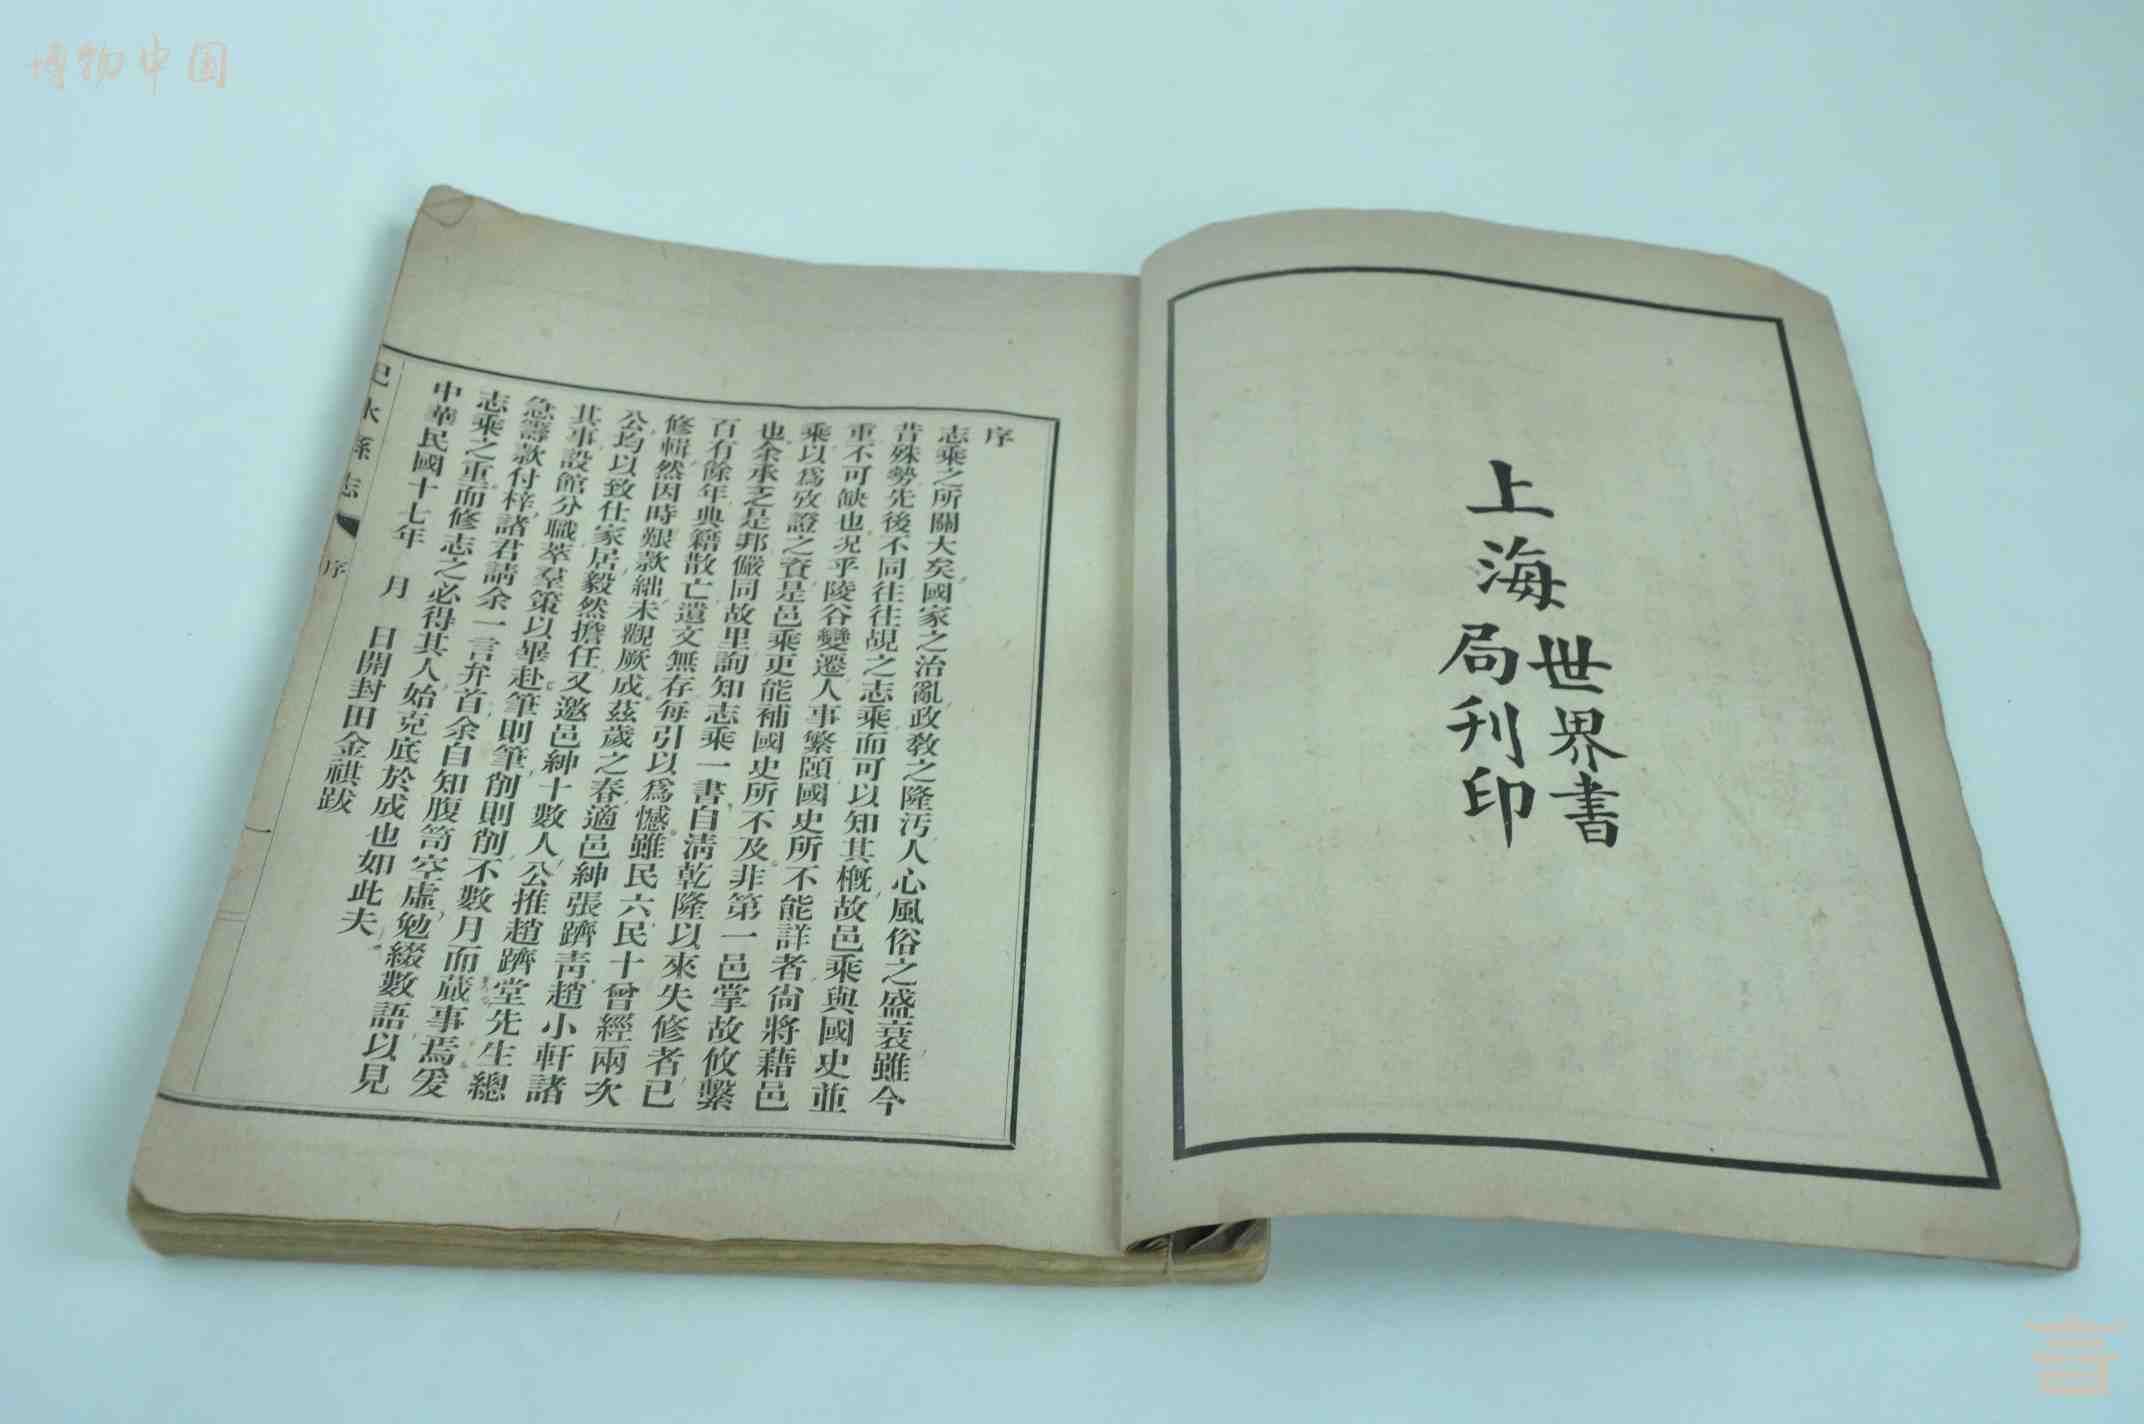 博物中国
上海
世界書
局刊印
序
志乘之所關大矣國家之治亂政教之隆汚人心風俗之盛衰雖今
昔殊勢先後不同往往覘之志乘而可以知其槪故邑乘與國史並
重不可缺也況乎陵谷變遷人事繁頤國史所不能詳者尙將藉邑
乘以爲攷證之資是邑乘更能補國史所不及非第一邑掌故攸繫
也余承乏是邦儼同故里詢知志乘一書自淸乾隆以來失修者已
百有餘年典籍散亡遺文無存每引以爲憾雖民六民十曾經兩次
修輯然因時艱款絀未觀厥成茲歲之春適邑紳張躋靑趙小軒諸
公均以致仕家居毅然擔任又邀邑紳十數人公推趙躋堂先生總
其事設館分職萃羣策以畢赴筆則筆削則削不數月而蕆事焉爰
急籌款付梓諸君請余一言弁首余自知腹笥空虛勉綴數語以見
志乘之重而修志之必得其人始克底於成也如此夫
中華民國十七年 月 日開封田金祺跋
水縣志 序
一